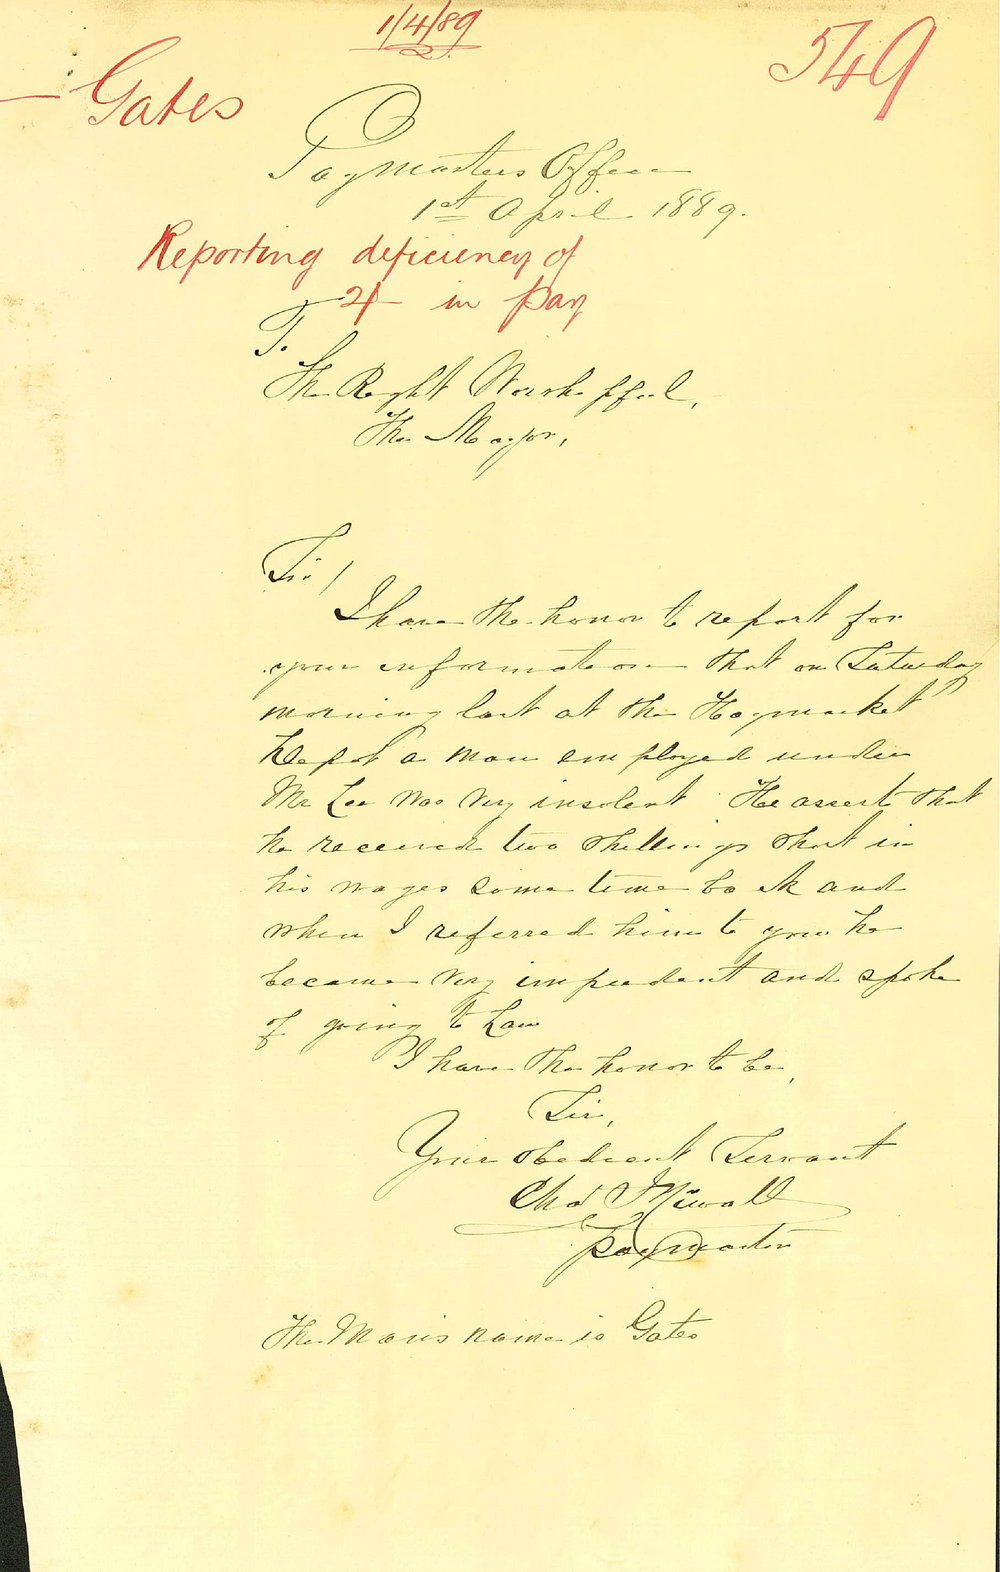 1/4/89
549
Gates
Paymasters Office
1st April 1889.
Reporting deficiency of
2/- in pay
To
The Right Worshipful,
The Mayor,
Sir/
I have the honor to report for
your information that on Saturday
morning last at the Haymarket
Depot a man employed under
Mr Lee was very insolent. He asserts that
he received two shillings short in
his wages some time back and
when I referred him to you he
became very impudent and spoke
of going to Law
I have the honor to be,
Sir,
Your obedient Servant
Chas Miwall
Paymaster
The Man's name is Gates